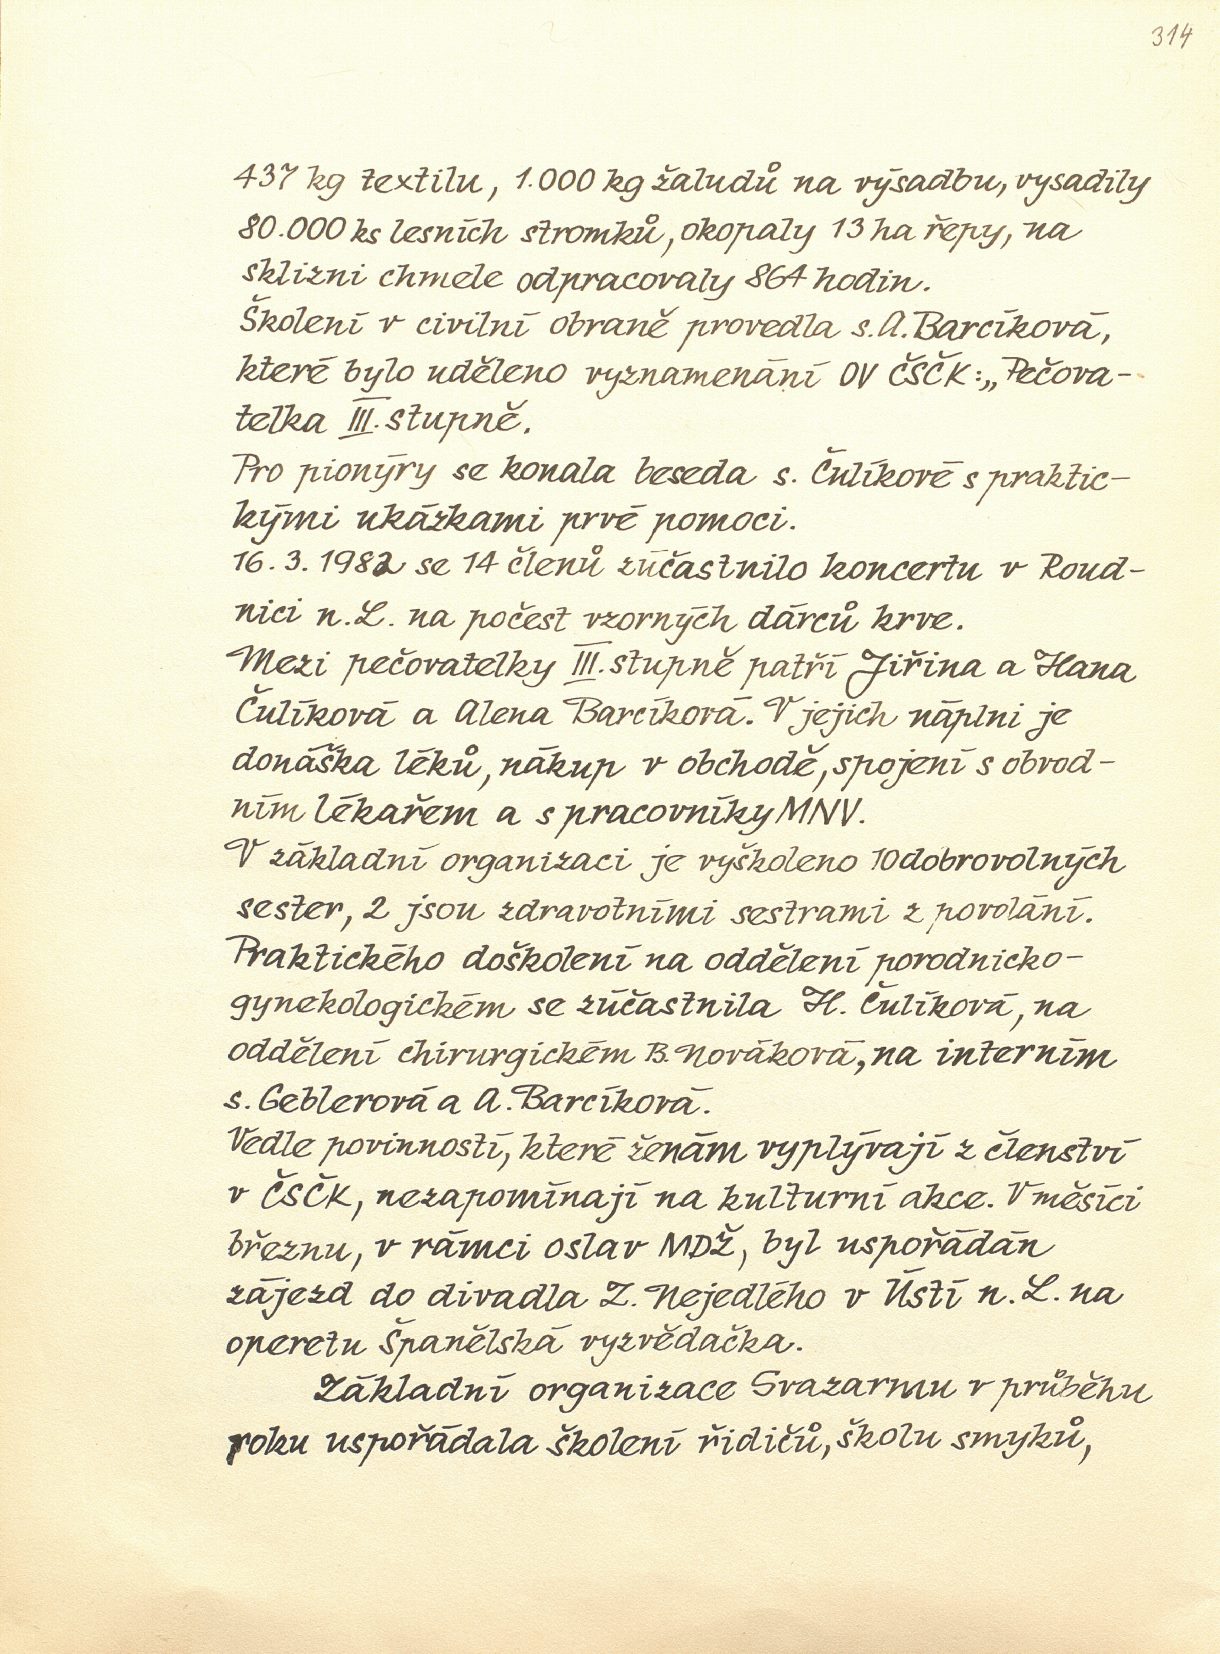 314
437 kg textilu, 1.000 kg žaludů na výsadbu, vysadily
80.000 ks lesních stromků, okopaly 13 ha řepy, na
sklizni chmele odpracovaly 864 hodin.
Školení v civilní obraně provedla s. A. Barcíková,
které bylo uděleno vyznamenání OV ČSČK: „Pečova-
telka III. stupně.
Pro pionýry se konala beseda s. Čulíkové s praktic-
kými ukázkami prvé pomoci.
16. 3. 1982 se 14 členů zúčastnilo koncertu v Roud-
nici n. L. na počest vzorných dárců krve.
Mezi pečovatelky III. stupně patří Jiřina a Hana
Čulíková a Alena Barcíková. V jejich náplni je
donáška léků, nákup v obchodě, spojení s obvod-
ním lékařem a s pracovníky MNV.
V základní organizaci je vyškoleno 10 dobrovolných
sester, 2 jsou zdravotními sestrami z povolání.
Praktického doškolení na oddělení porodnicko-
gynekologickém se zúčastnila H. Čulíková, na
oddělení chirurgickém B. Nováková, na interním
s. Geblerová a A. Barcíková.
Vedle povinností, které ženám vyplývají z členství
v ČSČK, nezapomínají na kulturní akce. V měsíci
březnu, v rámci oslav MDŽ, byl uspořádán
zájezd do divadla Z. Nejedlého v Ústí n. L. na
operetu Španělská vyzvědačka.
Základní organizace Svazarmu v průběhu
roku uspořádala školení řidičů, školu smyků,